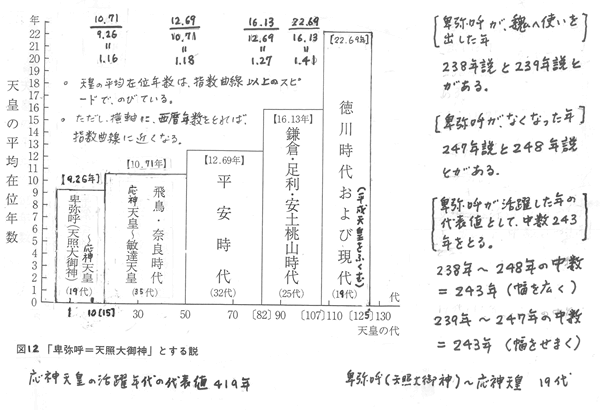 10.71
9.26
=
1.16
12.69
10.71
=
1.18
16.13
12.69
=
1.27
22.69
16.13
=
1.41
。天皇の平均在位年数は、指数曲線以上のスピ
ードで、のびている。
。ただし、横軸に、西暦年数をとれば、
指数曲線に近くなる。
天皇の平均在位年数
年
22
21
20
19
18
17
16
15
14
13
12
11
10
9
8
7
6
5
4
3
2
1
0
[9.26年]
卑弥呼(天照大御神)
〜応神天皇
(19代)
[10.71年]
飛鳥・奈良時代
応神天皇〜敏達天皇
(35代)
[12.69年]
平安時代
(32代)
[16.13年]
鎌倉・足利・安土桃山時代
(25代)
[22.69年]
徳川時代および現代
(平成天皇をふくむ)
(19代)
1 10 [15] 30 50 70 [82] 90 [107] 110 [125] 130
代
天皇の代
図12 「卑弥呼=天照大御神」とする説
応神天皇の活躍年代の代表値 419年
[卑弥呼が、魏へ使いを
出した年]
238年説と239年説と
がある。
[卑弥呼が、なくなった年]
247年説と248年説
とがある。
[卑弥呼が活躍した年の
代表値として、中数243
年をとる。]
238年〜248年の中数
=243年(幅を広く)
239年〜247年の中数
=243年(幅をせまく)
卑弥呼(天照大御神)〜応神天皇 19代